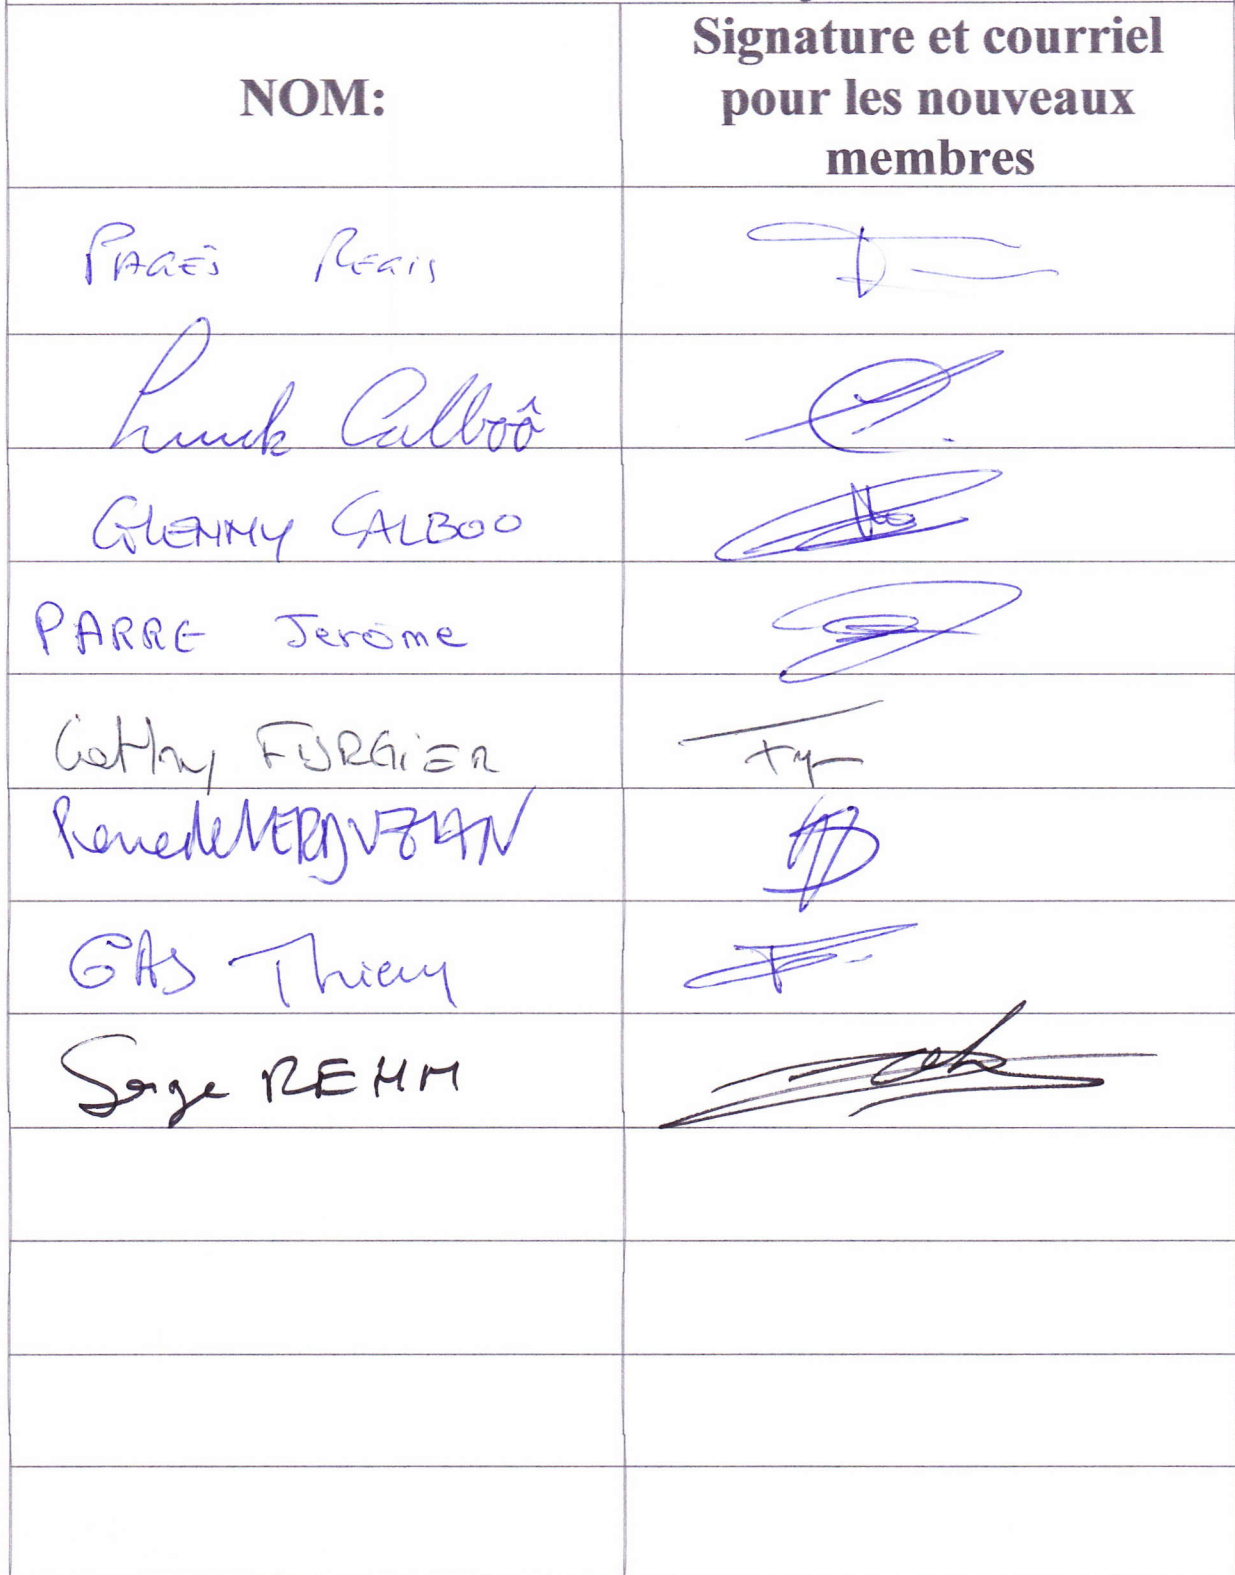 NOM:
Signature et courriel
pour les nouveaux
membres
PAGÈS Regis
Luuk Calboô
GLENMY CALBOO
PARRE Jerôme
Cathy FURGIER
René de VERDUZAN
GAS Thierry
Serge REHM